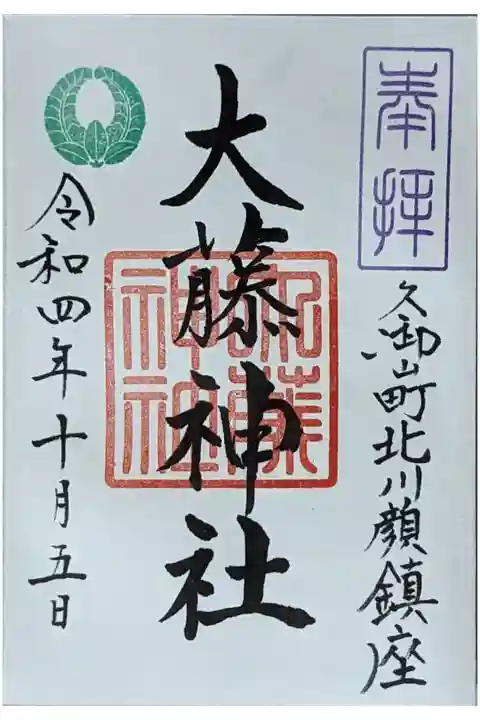 奉拝
久御山町北川顔鎮座
大藤神社
藤
神社
令和四年十月五日